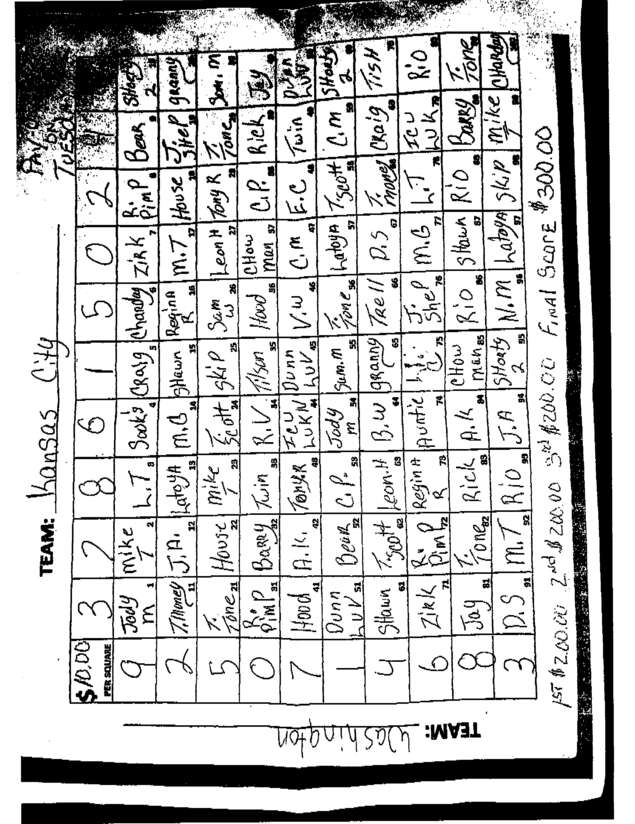 PAY-
TUESD
TEAM: Kansas City
$10.00 PER SQUARE 3 7 8 6 1 5 0 2
9 Jody m 1 mike T 2 L.T 3 4 Craig 5 Charday 6 Zirk 7 R. Pimp 8 Bear 9 Shorty 2
2 T.Money 11 J.A. 12 Latoya 13 M.G 14 Shawn 15 Regina R 16 M.T. 17 House 18 J. Shep granny
5 T. Tone 21 House 22 mike T 23 T. Scott 24 Skip 25 Sam W 26 Leon H 27 Tony R 28 T. Tone Sam. m
0 R. Pimp 31 Barry 32 Twin 33 R.V. 34 Tilson 35 Hood 36 CHow man 37 C.P. 38 Rick Jay
7 Hood 41 A.K. 42 Tony R 43 ICU LUKN 44 Dunn Luv 45 V.W 46 C.M 47 E.C 48 Twin Dunn Luv
1 Dunn Luv 51 Bear 52 C.P. 53 Jody m 54 Sam.m 55 T. Tone 56 Latoya 57 T.scott 58 C.m 59 Shorty 2
4 Shawn 61 T. Scott 62 Leon.H 63 B.W 64 granny 65 Tre ll 66 D.S 67 T. money 68 Craig 69 Tish 70
6 Zirk 71 R. Pimp 72 Regina R 73 Auntie 74 75 J. Shep 76 M.G 77 L.T 78 ICU LUK 79 Rio
8 Jay 81 T. Tone 82 Rick 83 A.K 84 CHow man 85 Rio 86 Shawn 87 Rio 88 Barry T. Tone
3 D.S 91 M.T 92 Rio 93 J.A 94 Shorty 2 95 N.M 96 Latoya 97 Skip 98 Mike T Charday
TEAM: Washington
1st $200.00 2nd $200.00 3rd $200.00 Final Score $300.00